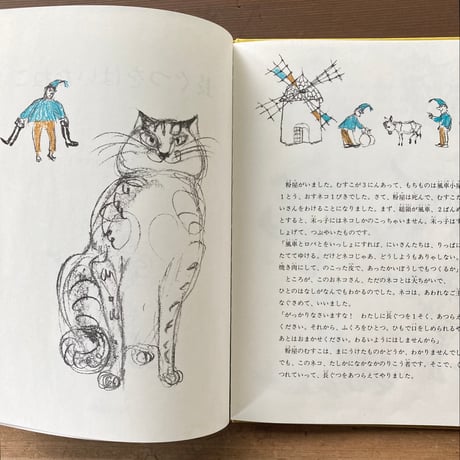 粉屋がいました。むすこが3にんあって、もちものは風車小屋
1とう、おすネコ1ぴきでした。さて、粉屋は死んで、むすこが
いさんをわけることになりました。まず、総領が風車、2ばんめ
とすると、末っ子にはネコしかのこっちゃいません。末っ子はす
しょげて、つぶやいたものです。
「風車とロバとをいっしょにすれば、にいさんたちは、りっぱ
たててゆける。だけどネコじゃあ、どうしようもありゃしない。
焼き肉にして、のこった皮で、あったかいぼうしでもつくるか」
ところが、このおネコさん、ただのネコとは大ちがいで、
ひとのはなしがなんでもわかるのでした。ネコは、あわれなご主
なぐさめて、いいました。
「がっかりなさいますな! わたしに長ぐつを1そく、あつらえ
ください。それから、ふくろをひとつ、ひもで口をしめられるや
あとはおまかせください。わるいようにはしませんから」
粉屋のむすこは、まにうけたものかどうか、わかりませんでし
でも、このネコ、たしかになかなかのりこう者です。そこで、く
つれていって、長ぐつをあつらえてやりました。